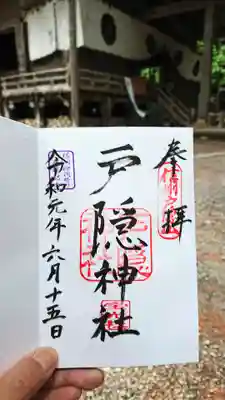 奉拝
戸隠神社
令和元年六月十五日